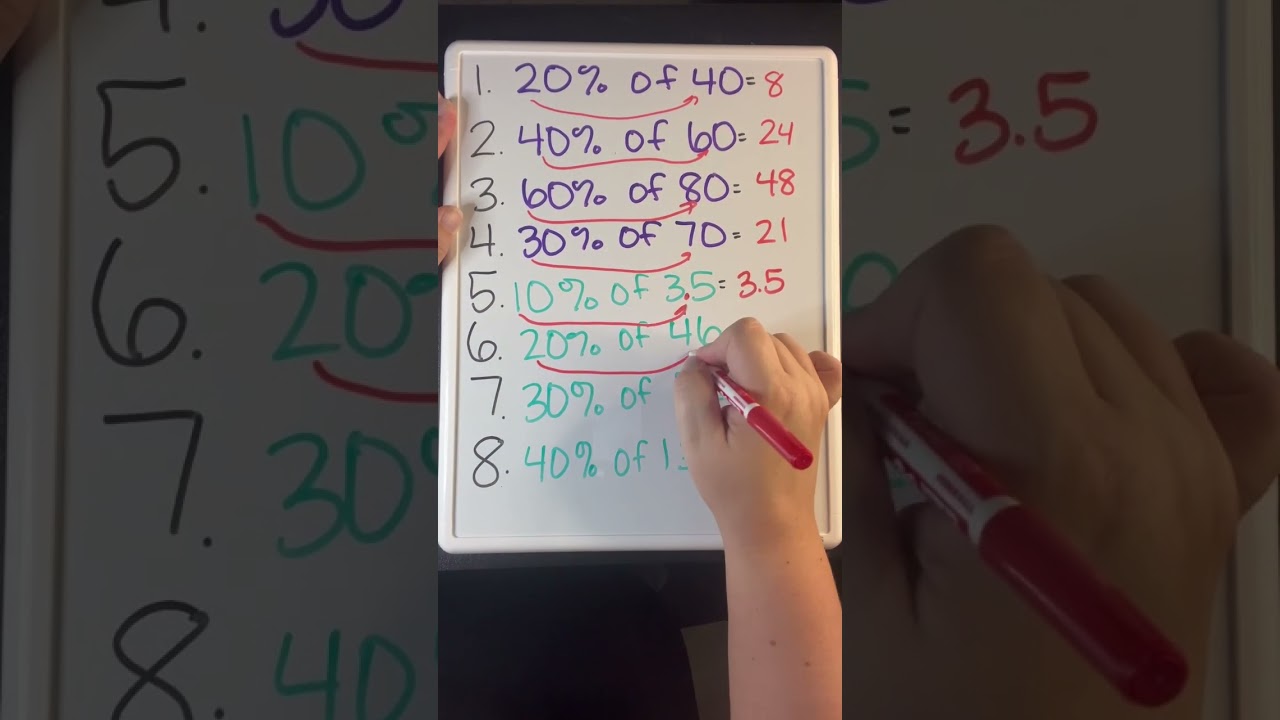 1. 20% of 40= 8
2. 40% of 60= 24
3. 60% of 80= 48
4. 30% of 70= 21
5. 10% of 3.5= 3.5
6. 20% of 46
7. 30% of
8. 40% of